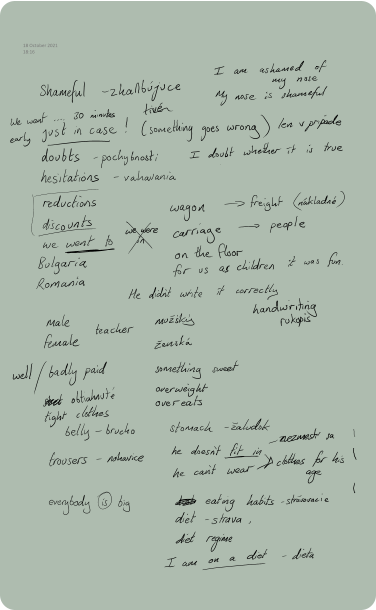 18 October 2021
I am ashamed of
my nose
My nose is shameful
Shameful - zhaňbujuce
We want .... 30 minutes
early just in case ! (something goes wrong) len v prípade
doubts - pochybnosti
I doubt whether it is true
hesitations - vahavania
reductions
discounts
wagon → freight (nákladné)
carriage → people
we went to
we were in
Bulgaria
Romania
on the floor
for us as children it was fun
He didn't write it correctly
handwriting
rukopis
male
female
teacher
mužský
ženská
well / badly paid
obtiahnuté
tight clothes
something sweet
overweight
overeats
belly - brucho
stomach - žalúdok
trousers - nohavice
he doesn't fit in
nezmestí sa
he can't wear
clothes for his
age
everybody is big
eating habits - stravovacie
diet - strava,
diet regime
I am on a diet - dieta